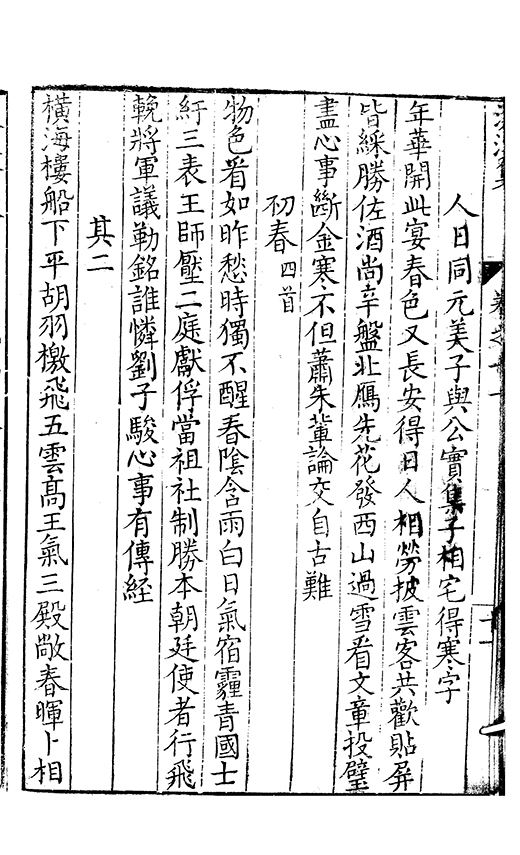 人日同元美子與公實集子相宅得寒字
年華開此宴春色又長安得日人相勞披雲客共歡貼屏
皆綵勝佐酒尚辛盤北鴈先花發西山過雪看文章投璧
盡心事斷金寒不但蕭朱輩論交自古難
初春四首
物色看如昨愁時獨不醒春陰含雨白日氣宿霾青國士
紆三表王師壓二庭獻俘當祖社制勝本朝廷使者行飛
輓將軍議勒銘誰憐劉子駿心事有傳経
其二
橫海樓船下平胡羽檄飛五雲高王氣三殿敞春暉卜相